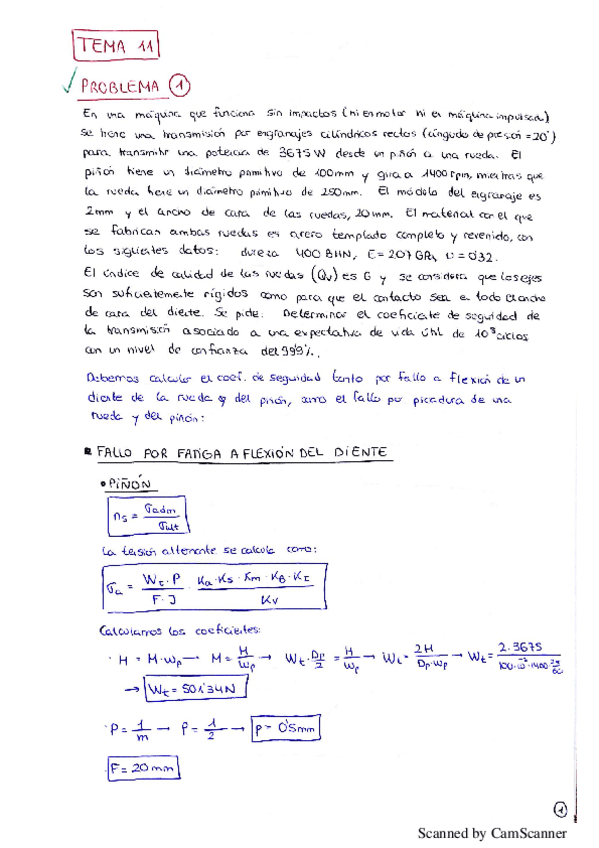 TEMA 11
PROBLEMA 1
En una máquina que funciona sin impactos (ni en motor ni en máquina impulsada)
se tiene una transmisión por engranajes cilíndricos rectos (ángulo de presión = 20°)
para transmitir una potencia de 3675 W desde un piñón a una rueda. El
piñón tiene un diámetro primitivo de 100mm y gira a 1400 rpm, mientras que
la rueda tiene un diámetro primitivo de 250mm. El módulo del engranaje es
2mm y el ancho de cara de las ruedas, 20mm. El material con el que
se fabrican ambas ruedas es acero templado completo y revenido, con
los siguientes datos: dureza 400 BHN, E = 207 GPa, υ = 0'32.
El índice de calidad de las ruedas (Qv) es 6 y se considera que los ejes
son suficientemente rígidos como para que el contacto sea a todo el ancho
de cara del diente. Se pide: Determinar el coeficiente de seguridad de
la transmisión asociado a una expectativa de vida útil de 10⁹ ciclos
con un nivel de confianza del 99'9%.
Debemos calcular el coef. de seguridad tanto por fallo a flexión de un
diente de la rueda y del piñón, como el fallo por picadura de una
rueda y del piñón:
FALLO POR FATIGA A FLEXIÓN DEL DIENTE
• PIÑÓN
ns = σadm / σult
La tensión alternante se calcula como:
σa = Wt · P / F · J · Ka · Ks · Km · KB · KI / Kv
Calculamos los coeficientes:
· H = M · wp → M = H / wp → Wt · Dp / 2 = H / wp → Wt = 2H / Dp · wp → Wt = 2 · 3675 / 100 · 10⁻³ · 1400 · 2π / 60
→ Wt = 501'34N
· P = 1 / m → P = 1 / 2 → P = 0'5mm
F = 20mm
1
Scanned by CamScanner